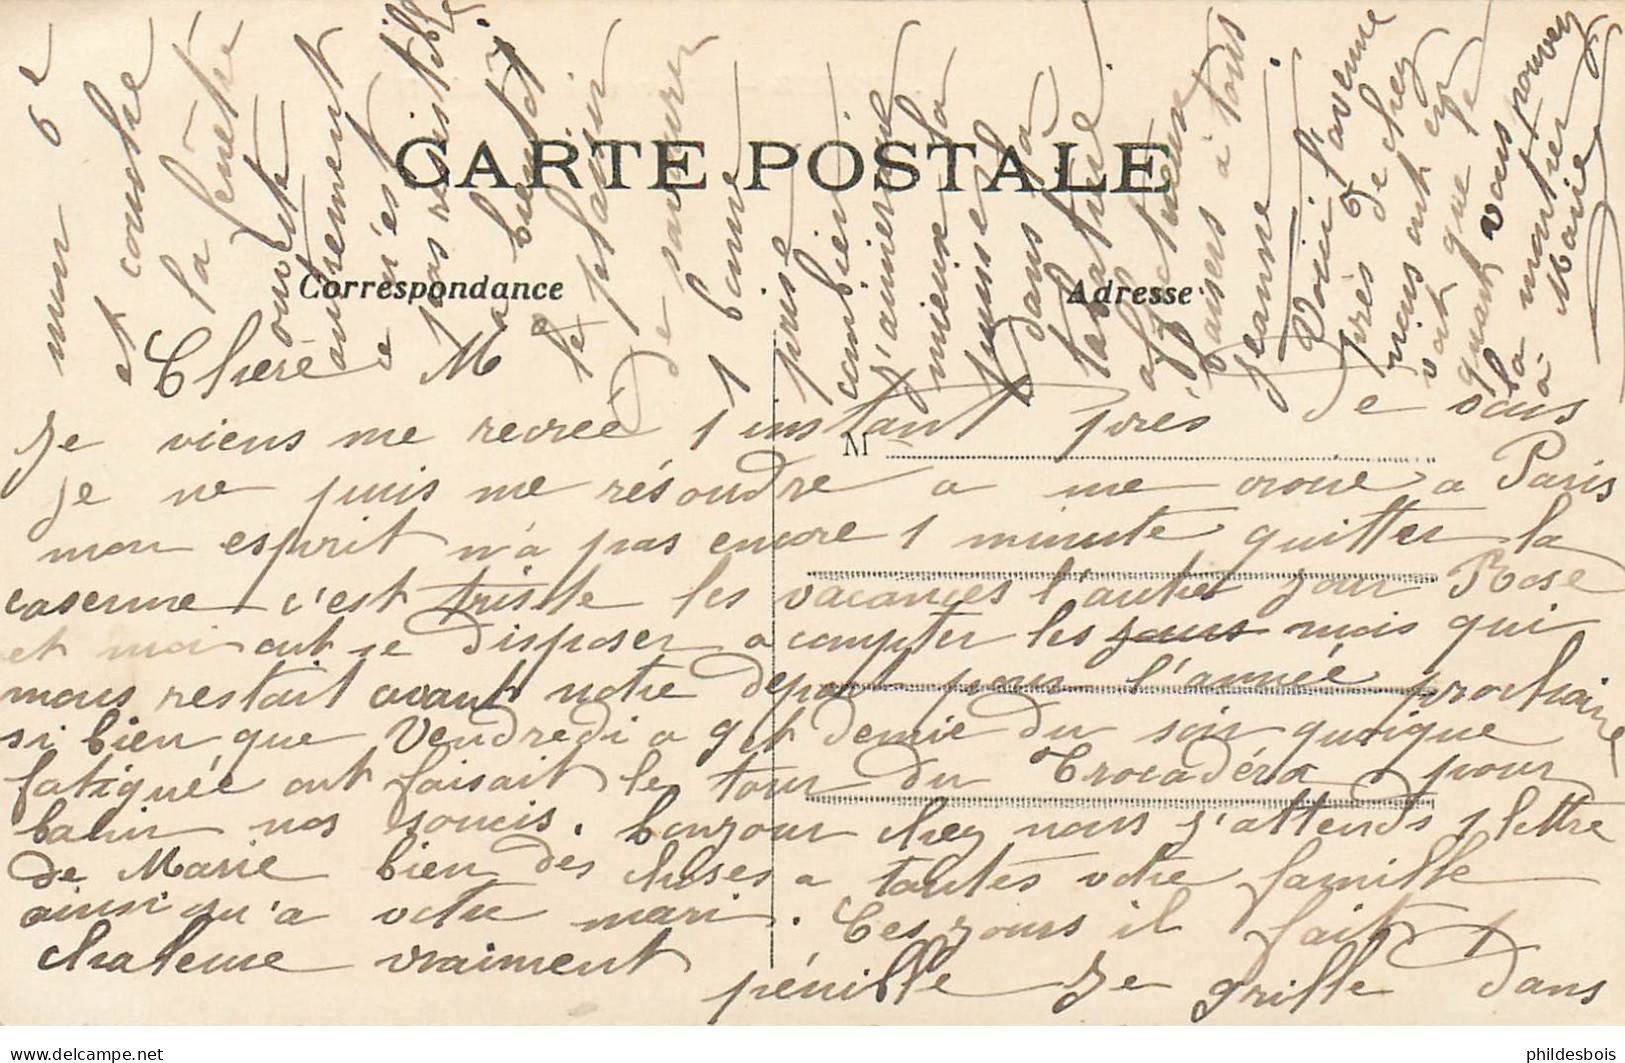 CARTE POSTALE
Correspondance
Adresse
M
Chère Me
Je viens me recreé 1 instant près de vous
je ne puis me résoudre a me croire a Paris
mon esprit n'a pas encore 1 minute quitter la
caserne c'est triste les vacances l'autre jour Rose
et moi ont se disposer a compter les jours mois qui
nous restait avant notre depart pour l'année prochaine
si bien que Vendredi a 9 et demie du soir quoique
fatiguée ont faisait le tour du Trocadéro pour
nos soucis. bonjour chez nous j'attends 1 lettre
de Marie bien des choses a toutes votre famille
ainsi qu'a votre mari. Ces jours il fait 1
chaleur vraiment pénille Je grille dans
mon 6e
et couche
la fenêtre
ouverte
autrement
ce n'est
pas resistible
a bientôt
le plaisir
de savourer
1 bonne
prise
combien
j'aimerais
mieux la
puisse
dans la
tabatière
affectueux
baisers à tous
Jeanne
Voici l'avenue
près de chez
nous ont ez
voit que le
quart vous pouvez
la montrer
à Marie
phildesbois